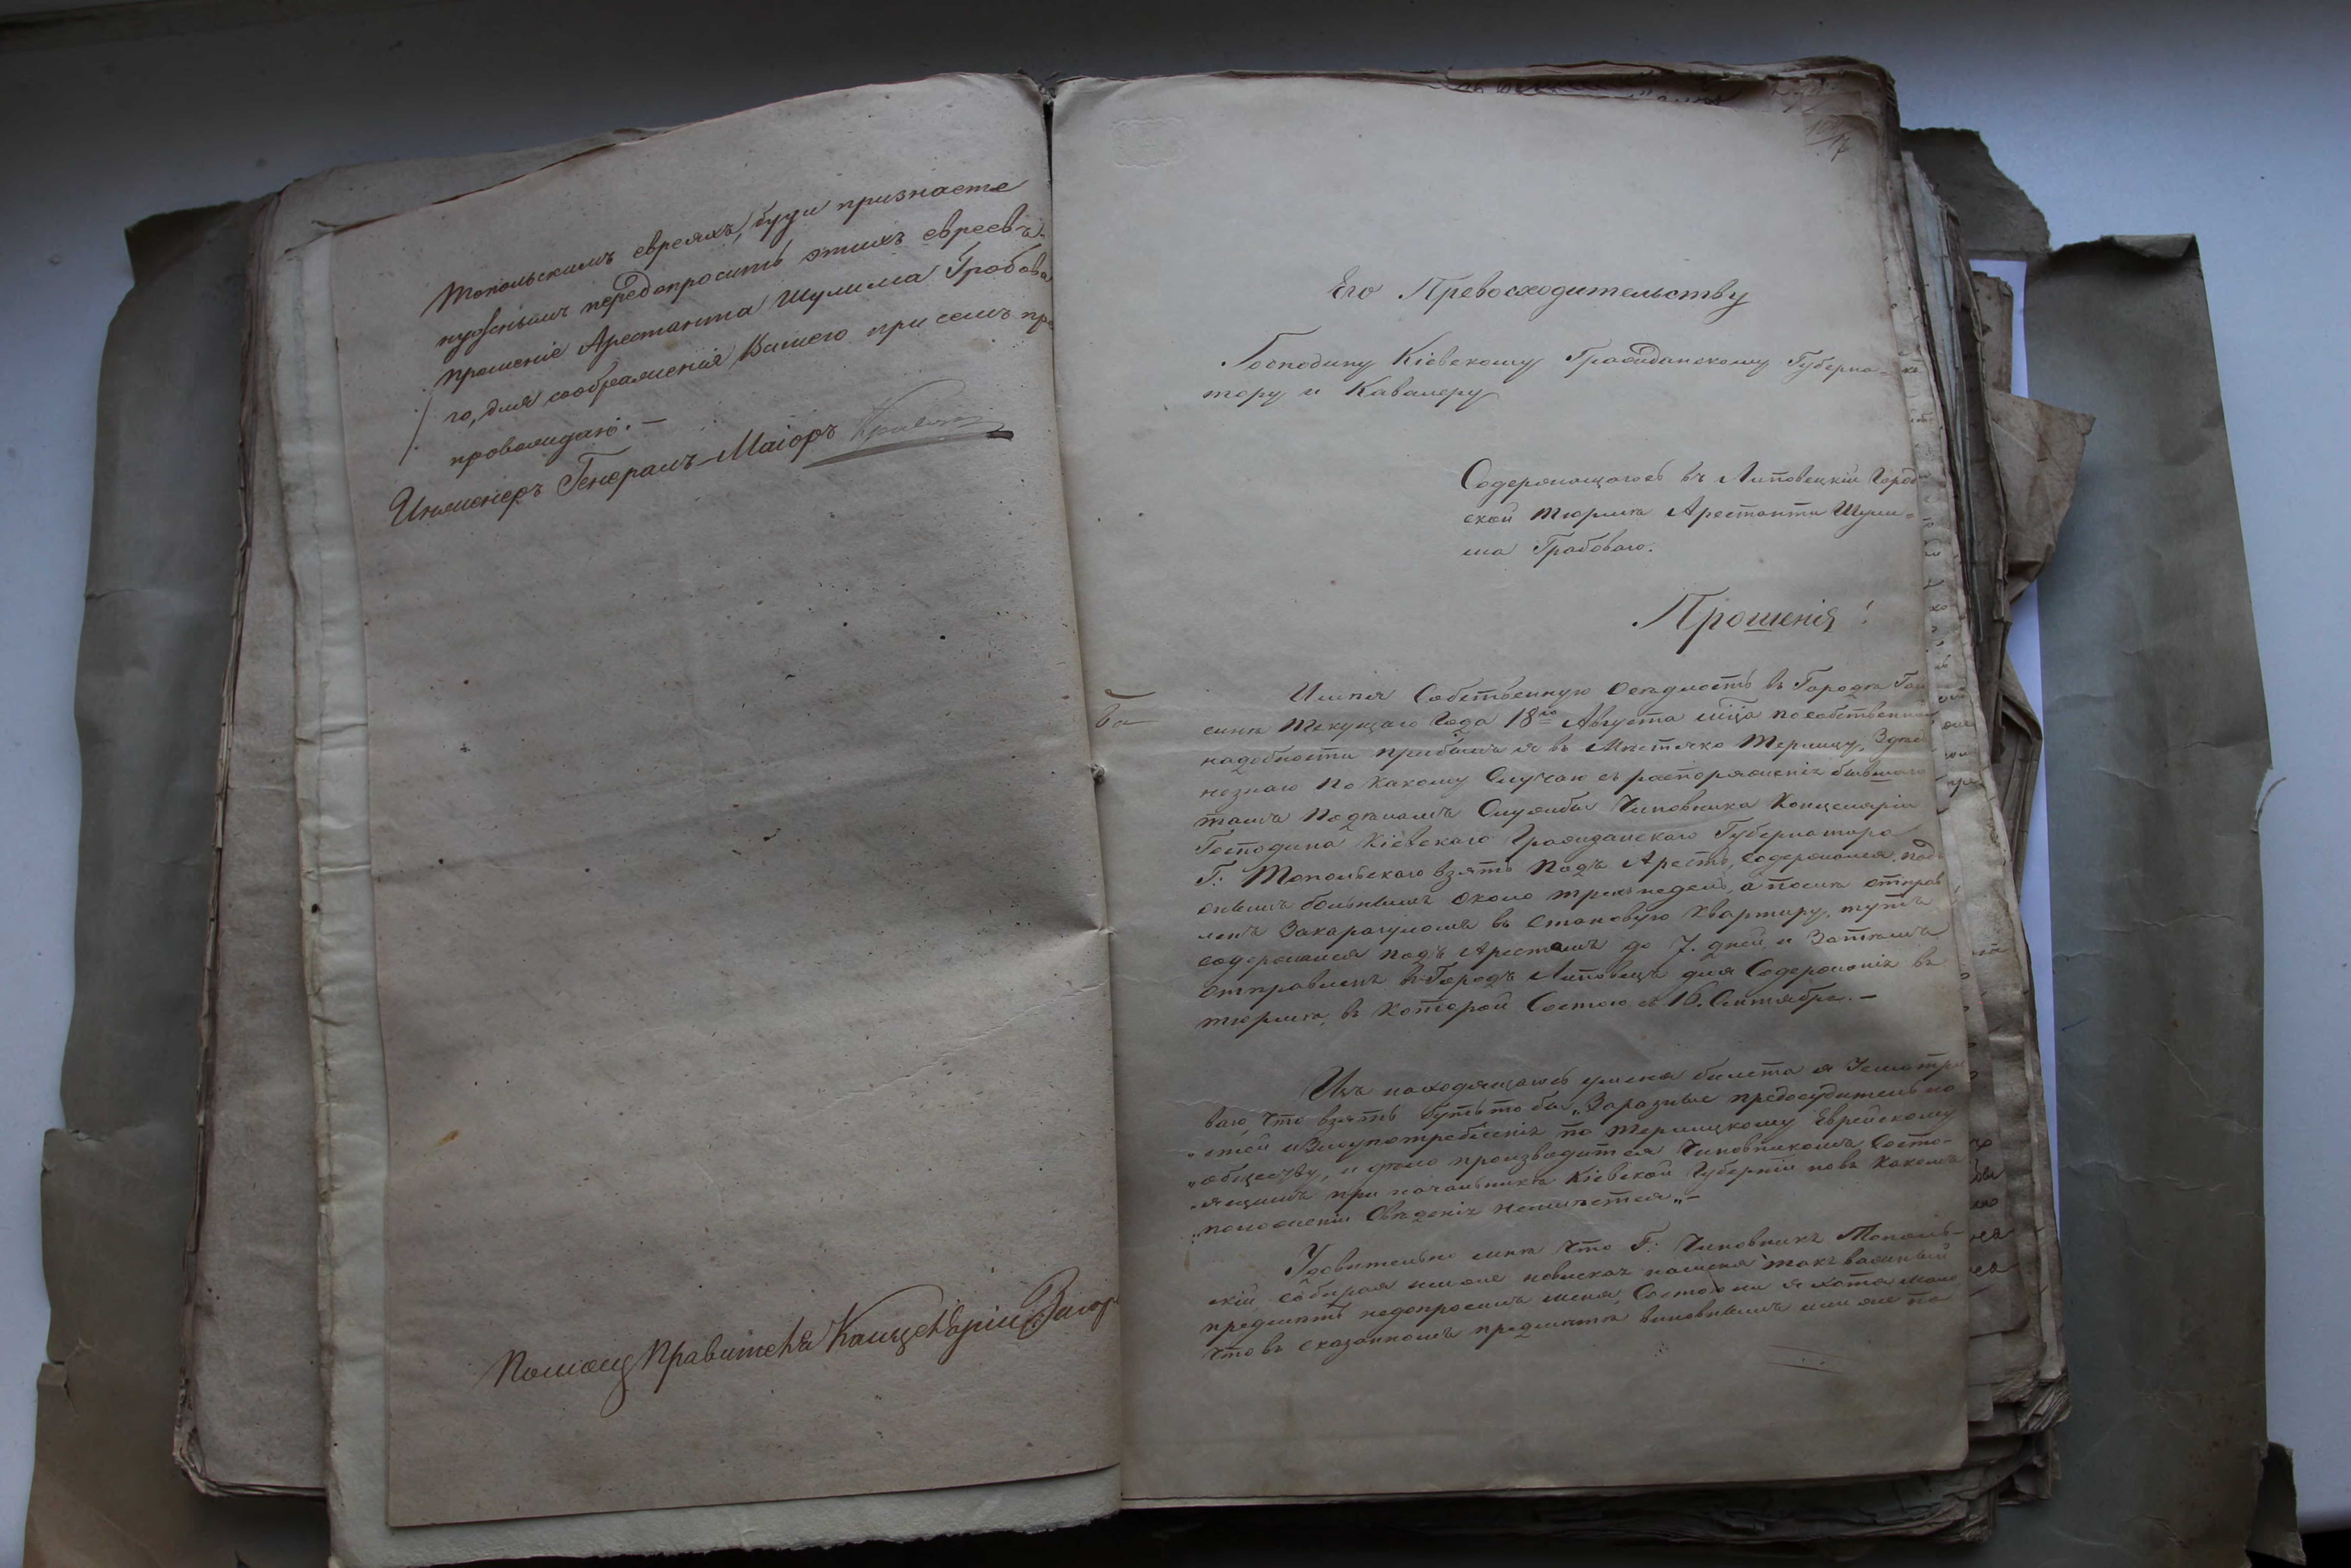 Топольскимъ евреяхъ, буди признаете
нужнымъ передопросить этихъ евреевъ.
прошеніе Арестанта Шулима Гробова
го, для соображенія Вашего при семъ пре
провождаю. —
Инженеръ Генералъ-Маіоръ
Помощ Правителя Канцеляріи
Его Превосходительству
Господину Кіевскому Гражданскому Губерна=
тору и Кавалеру
Содержащагось въ Липовецкій Город
ской тюрмѣ Арестанта Шули=
ма Грабоваго.
Прошенія!
Имѣя Собственную Осѣдлость въ Городѣ Гай
синѣ Текущаго Года 18го Августа мѣца по собственной
надобности прибылъ я въ Мѣстечко Терлицу, Здѣс
незнаю По Какому Случаю съ распоряженія бывшаго
тамъ По дѣламъ Службы Чиновника Канцеляріи
Господина Кіевскаго Гражданскаго Губернатора
Г: Топольскаго взятъ Подъ Арестъ, содержался под
онымъ больнымъ Около трехъ недель, а послѣ отправ
ленъ Закарауломъ въ Становую Квартиру, тутъ
содержался подъ Арестамъ до 7. дней, и Затѣмъ
отправленъ въ Городъ Липовецъ для Содержанія въ
тюрмѣ, въ Которой Состою съ 16. Сентября. —
Изъ находящагось уменя билета я Усмотри
ваю, Что взятъ будьто бы „Заразные предосудительно
„стей и Злоупотребленія по Терлицкому Еврейскому
„обществу, и дѣло производится Чиновникомъ Состо-
„ящимъ при начальникѣ Кіевской Губерніи новъ Какомъ
„положеніи Свѣденія неимѣется„ —
Удовительно мнѣ Что Г: Чиновникъ Тополь-
скій, собирая
предмѣтъ недопросилъ меня, Состою ли я хотя мало
Что въ сказанномъ предмѣтѣ виновнымъ или же по